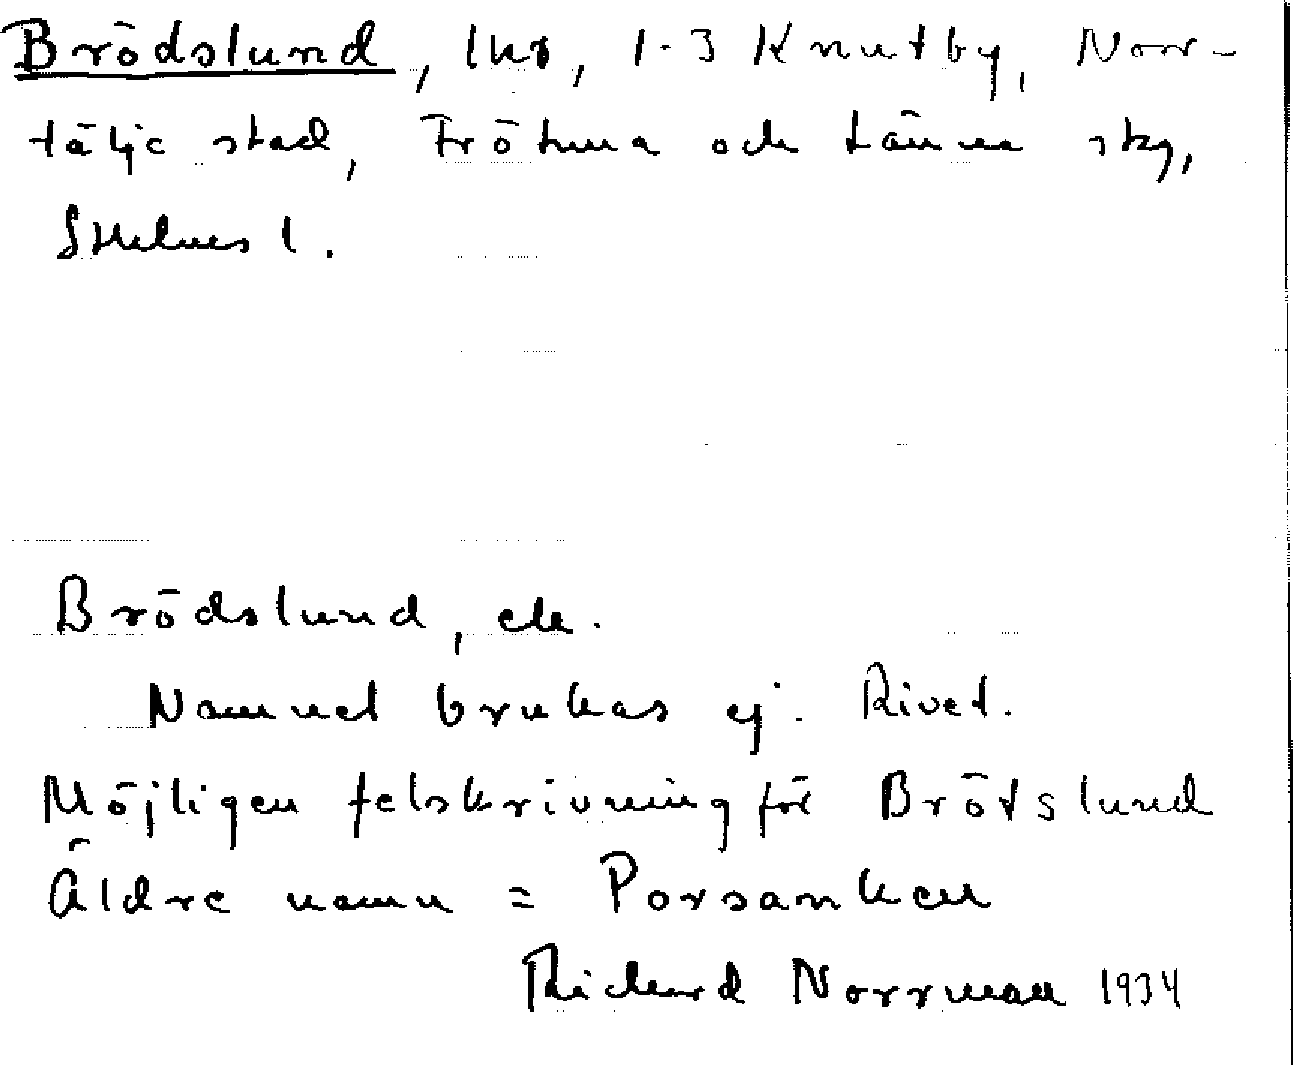 Brödslund, lhr, 1-3 Knutby, Norr-
tälje stad, Frötuna och Länna sky,
Sthlms l.
Brödslund, ctr.
Namnet brukas ej. Rivet.
Möjligen felskrivning för Brötslund
Äldre namn = Porsanken
Richard Norrman 1934